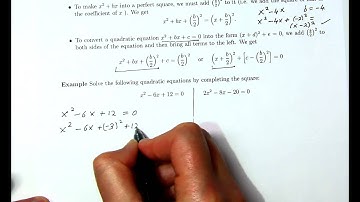 • To make x² + bx into a perfect square, we must add (b/2)² to it (i.e. we add the square of half
the coefficient of x ). We get
x² + bx + (b/2)² = (x + b/2)².
x² - 4x b = -4
x² - 4x + (-2)² =
(x - 2)²
• To convert a quadratic equation x² + bx + c = 0 into the form (x + d)² + e = 0, we add (b/2)² to
both sides of the equation and then bring all terms to the left. We get
x² + bx + (b/2)² + c = (b/2)² or (x + b/2)² + [c − (b/2)²] = 0
Example Solve the following quadratic equations by completing the square:
x² − 6x + 12 = 0 2x² − 8x − 20 = 0
x² - 6x + 12 = 0
x² - 6x + (-3)² + 12